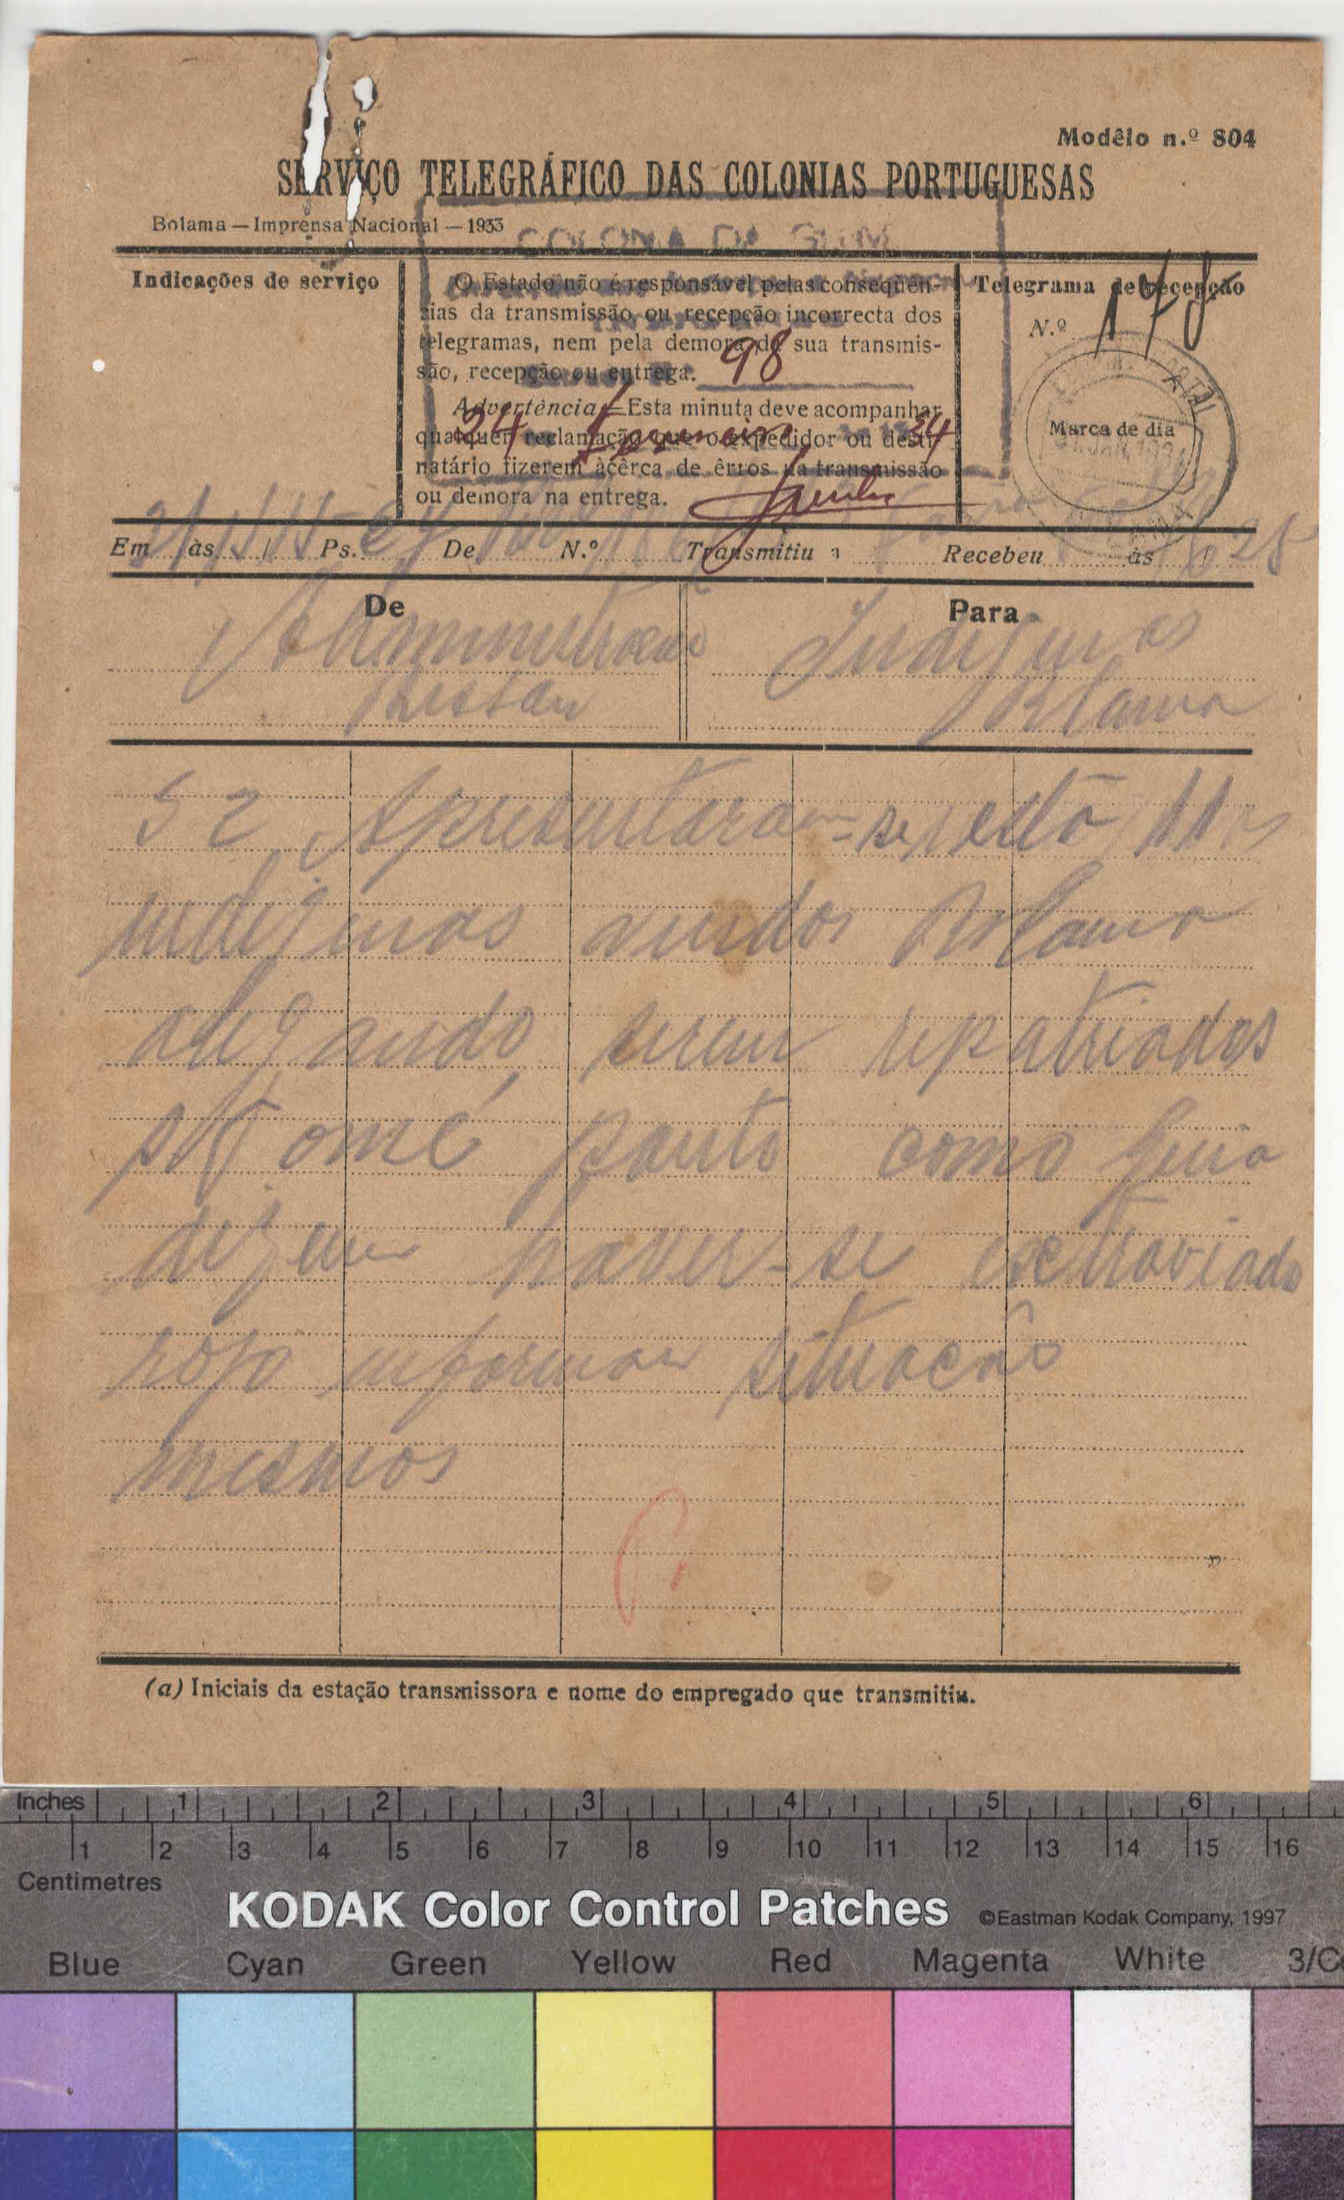 Modêlo n.º 804
SERVIÇO TELEGRÁFICO DAS COLONIAS PORTUGUESAS
Bolama — Imprensa Nacional — 1933
COLONIA DA GUINÉ
Indicações de serviço
O Estado não é responsável pelas consequên-
cias da transmissão ou recepção incorrecta dos
telegramas, nem pela demora de sua transmis-
são, recepção ou entrega.
98
Advertência — Esta minuta deve acompanhar
qualquer reclamação que o expedidor ou desti-
natário fizerem àcêrca de êrros da transmissão
ou demora na entrega.
24 Janeiro 34
Telegrama de recepção
N.º 178
Marca de dia
Em às Ps. De N.º Transmitiu a Recebeu às
De
Administração
Bissau
Para
Indigenas
Bolama
52 Apresentaram-se esta 11
indigenas vindos Bolama
alegando serem repatriados
S Tomé ponto como guia
dizem haver-se extraviado
rogo informar situacão
mesmos
(a) Iniciais da estação transmissora e nome do empregado que transmitiu.
Inches 1 2 3 4 5 6
1 2 3 4 5 6 7 8 9 10 11 12 13 14 15 16
Centimetres
KODAK Color Control Patches ©Eastman Kodak Company, 1997
Blue Cyan Green Yellow Red Magenta White